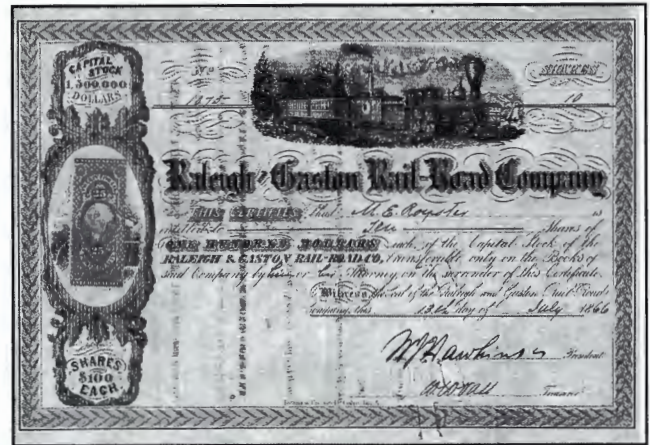 CAPITAL
STOCK
1,500,000
DOLLARS
No
SHARES
10
Raleigh and Gaston Rail-Road Company
THIS CERTIFIES that M. E. Royster is
entitled to Ten Shares of
ONE HUNDRED DOLLARS each, of the Capital Stock of the
RALEIGH & GASTON RAIL-ROAD CO. transferable only on the Books of
said Company by his or Attorney on the surrender of this Certificate.
Witness the Seal of the Raleigh and Gaston Rail-Road
Company, this 13th day of July 1866
W J Hawkins President
Treasurer
25
SHARES
$100
EACH